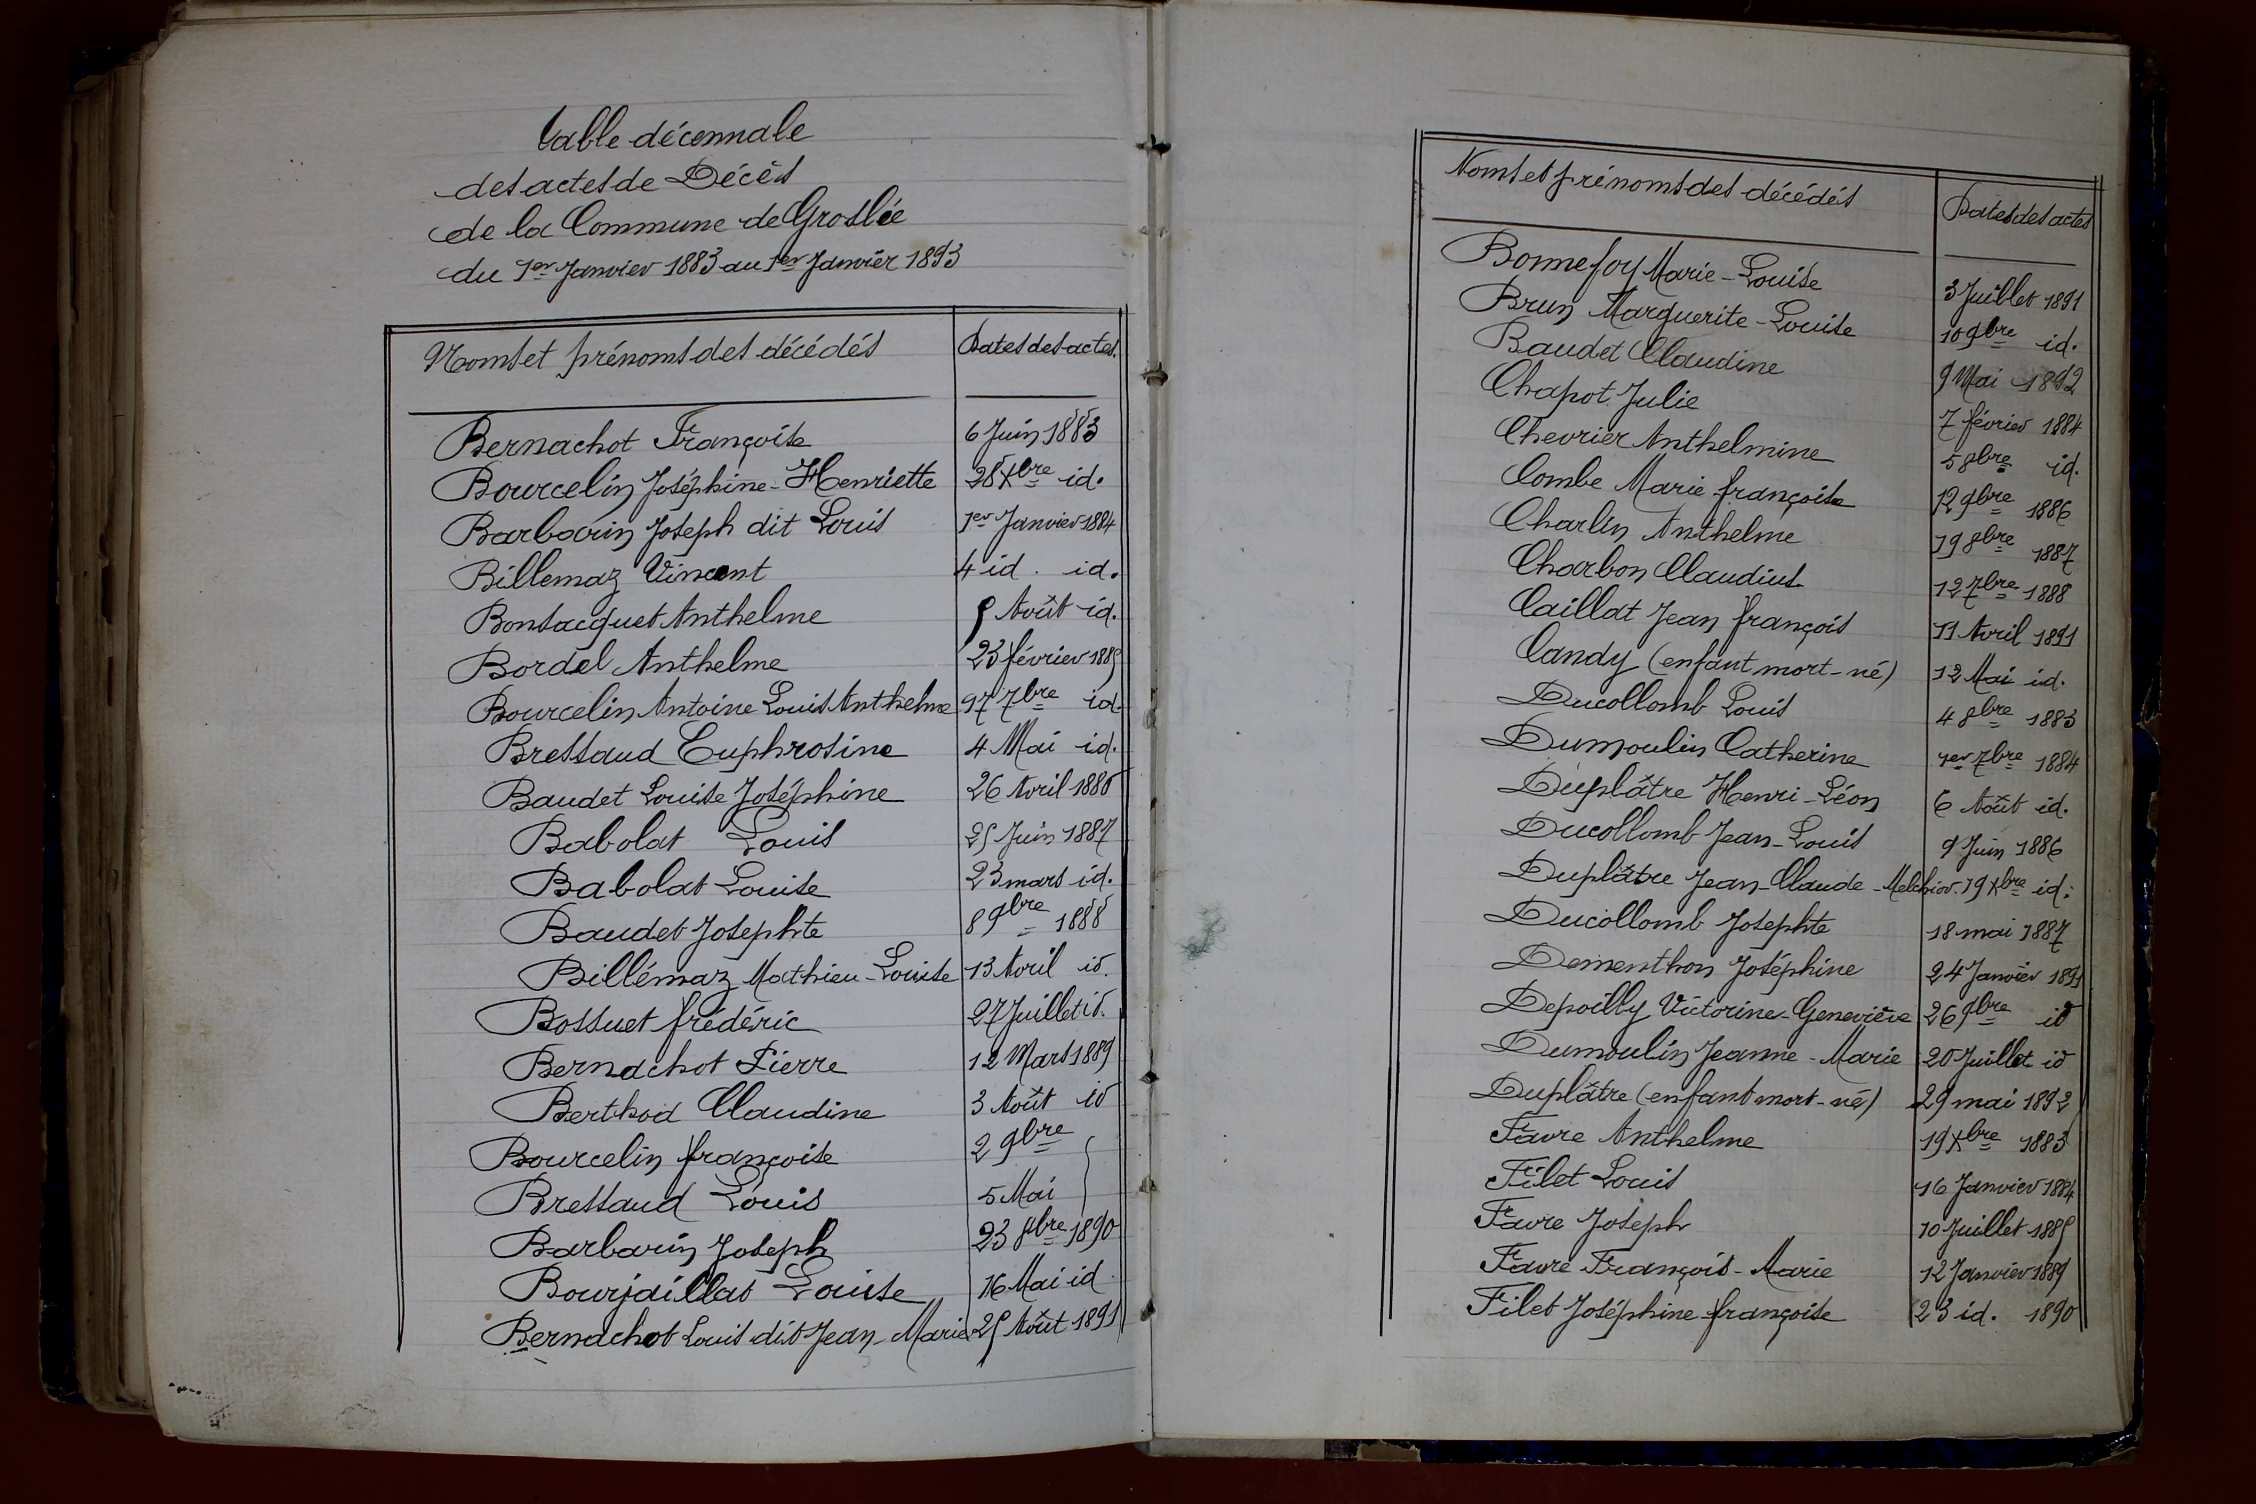 Table décennale
des actes de Décès
de la Commune de Groslée
du 1er Janvier 1883 au 1er Janvier 1893
Noms et prénoms des décédés Dates des actes.
Bernachot Françoise 6 Juin 1883
Bourcelin Joséphine-Henriette 28 Xbre id.
Barbarin Joseph dit Louis 1er Janvier 1884
Billemaz Vincent 4 id. id.
Bonsacquet Anthelme 5 Août id.
Bordel Anthelme 23 février 1885
Bourcelin Antoine Louis Anthelme 7bre id.
Bressaud Euphrosine 4 Mai id.
Baudet Louise Joséphine 26 Avril 1886
Babolat Louis 25 Juin 1887
Babolat Louise 23 mars id.
Baudet Josephte 8 9bre 1888
Billémaz Mathieu-Louise 13 Avril id.
Bossuet frédéric 27 Juillet id.
Bernachot Pierre 12 Mars 1889
Berthod Claudine 3 Août id
Bourcelin françoise 2 9bre
Bressaud Louis 5 Mai
Barbarin Joseph 23 8bre 1890
Bourjaillat Louise 16 Mai id
Bernachot Louis dit Jean-Marie 25 Août 1891
Noms et prénoms des décédés Dates des actes
Bonnefoy Marie-Louise 3 Juillet 1891
Brun Marguerite-Louise 10 9bre id.
Baudet Claudine 9 Mai 1892
Chapot Julie 7 février 1884
Chevrier Anthelmine 5 8bre id.
Combe Marie françoise 12 9bre 1886
Charlin Anthelme 19 8bre 1887
Charbon Claudius 12 7bre 1888
Caillat Jean françois 11 Avril 1891
Candy (enfant mort-né) 12 Mai id.
Ducollomb Louis 4 8bre 1883
Dumoulin Catherine 1er 7bre 1884
Duplâtre Henri-Léon 6 Août id.
Ducollomb Jean-Louis 9 Juin 1886
Duplâtre Jean-Claude-Melchior 19 Xbre id.
Ducollomb Josephte 18 mai 1887
Dementhon Joséphine 24 Janvier 1891
Depoilly Victorine-Geneviève 26 9bre id
Dumoulin Jeanne-Marie 20 Juillet id
Duplâtre (enfant mort-né) 29 mai 1892
Favre Anthelme 19 Xbre 1883
Filet Louis 16 Janvier 1884
Favre Joseph 10 Juillet 1885
Favre François-Marie 12 Janvier 1889
Filet Joséphine-françoise 23 id. 1890